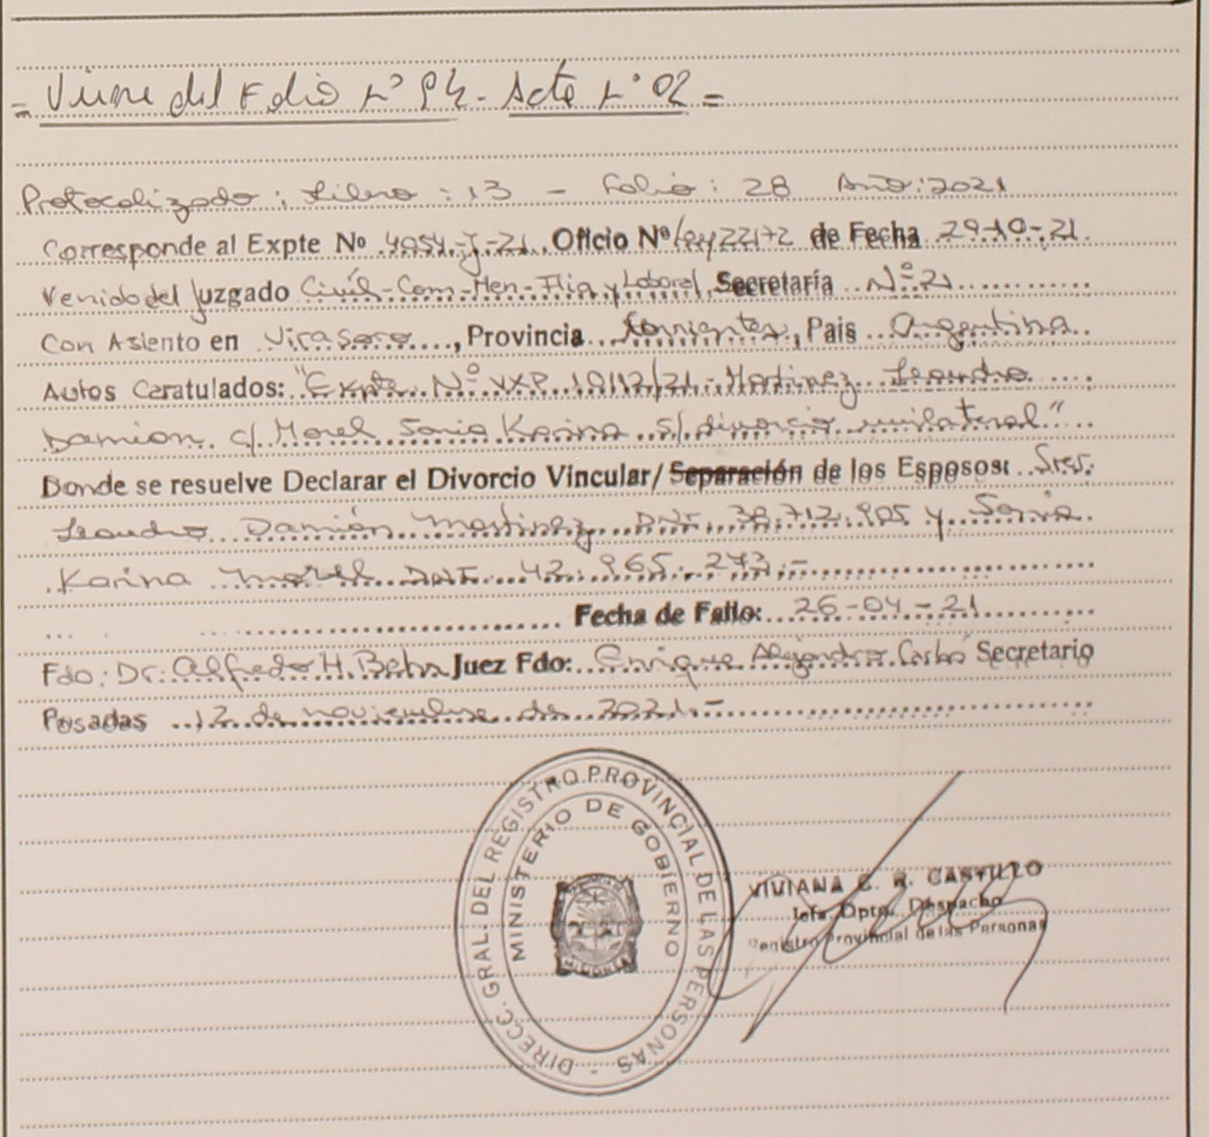 = Viene del Folio N° 94 - Acta N° 02 =
Protocolizado: Libro: 13 - Folio: 28 Año: 2021
Corresponde al Expte Nº 4054-J-21. Oficio Nº de Fecha 29-10-21.
Venido del Juzgado Civil-Com-Men-Flia y Laboral Secretaría N° 21
Con Asiento en Virasoro, Provincia Corrientes, Pais Argentina
Autos Caratulados: "Expte. N° VXP 10112/21 - Martinez Leandro
Damian c/ Morel Sonia Karina s/ divorcio unilateral"
Donde se resuelve Declarar el Divorcio Vincular/ Separación de los Esposos: Sres.
Leandro Damián Martinez DNI. 38.712.905 y Sonia
Karina Morel DNI. 42.965.273.-
Fecha de Fallo: 26-04-21
Fdo: Dr. Alfredo H. Juez Fdo: Enrique Alejandro Carlos Secretario
Posadas 12 de noviembre de 2021.-
DIRECC. GRAL. DEL REGISTRO PROVINCIAL DE LAS PERSONAS -
MINISTERIO DE GOBIERNO
MISIONES
VIVIANA G. R. CASTILLO
Jefa Dpto. Despacho
Registro Provincial de las Personas